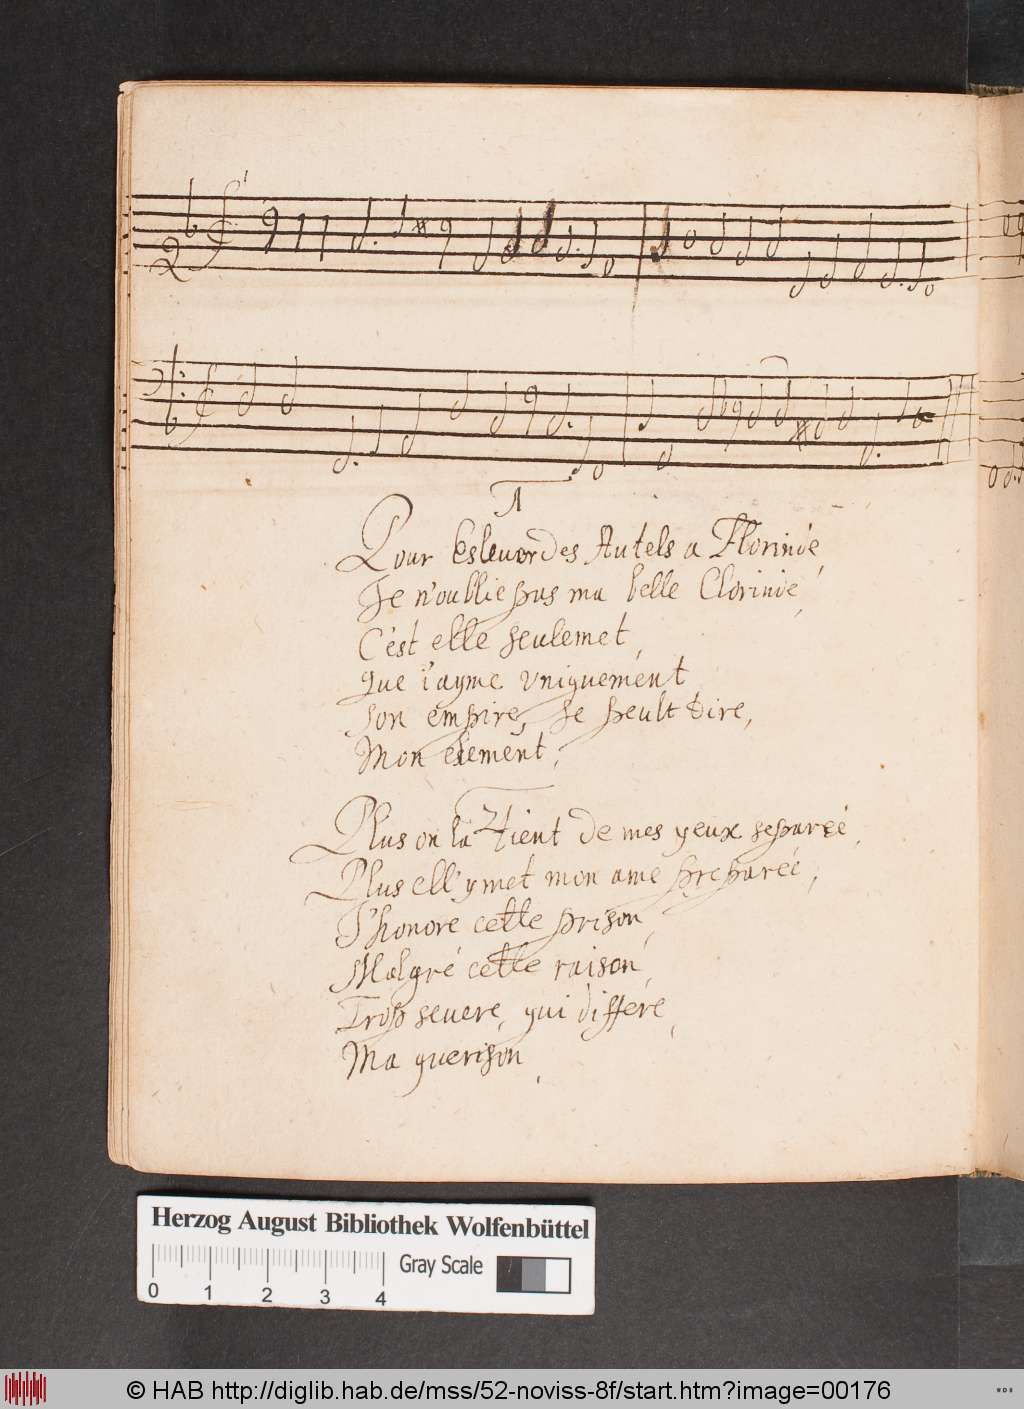 1
Pour Esleuer des Autels a Florinde,
Je n'oublie pas ma belle Clorinde,
C'est elle seulemet,
Que i'ayme vniquement
Son empire, se peult dire,
Mon element,
2
Plus on la tient de mes yeux separée,
Plus ell' y met mon ame preparée,
J'honore cette prison,
Malgré cette raison,
Trop seuere, qui differe,
Ma guerison,
Herzog August Bibliothek Wolfenbüttel
Gray Scale
0 1 2 3 4
© HAB http://diglib.hab.de/mss/52-noviss-8f/start.htm?image=00176